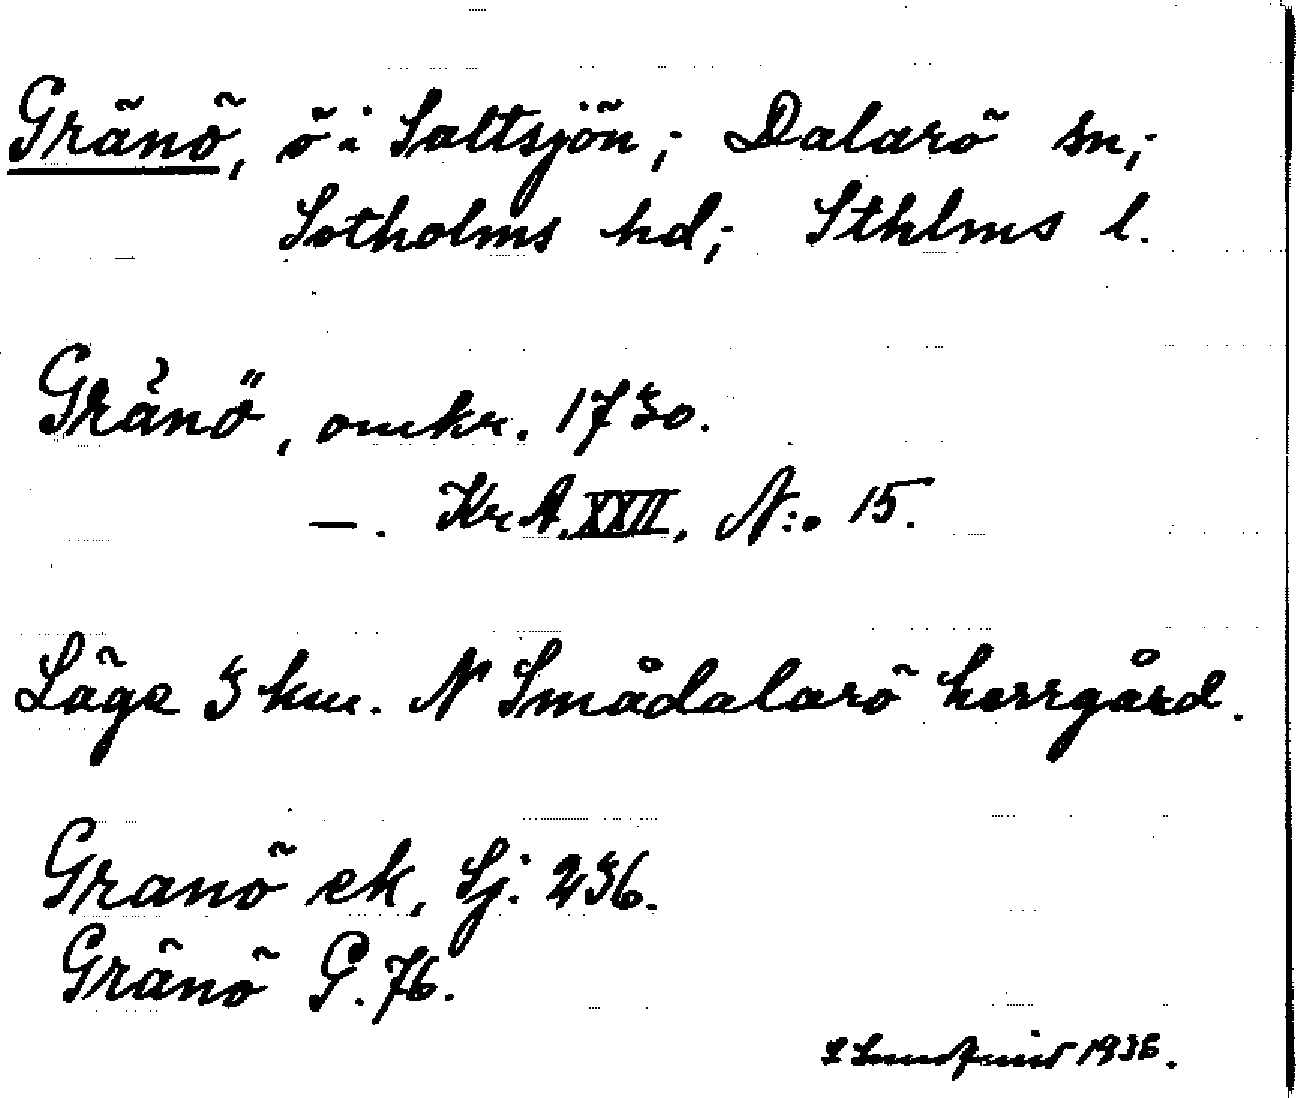 Gränö, ö i Saltsjön; Dalarö sn;
Sotholms hd; Sthlms l.
Gränö, omkr. 1730.
—. KrA. XXII. N:o 15.
Läge 3 km. N Smådalarö herrgård.
Granö ek, Sj: 236.
Gränö G. 76.
1936.